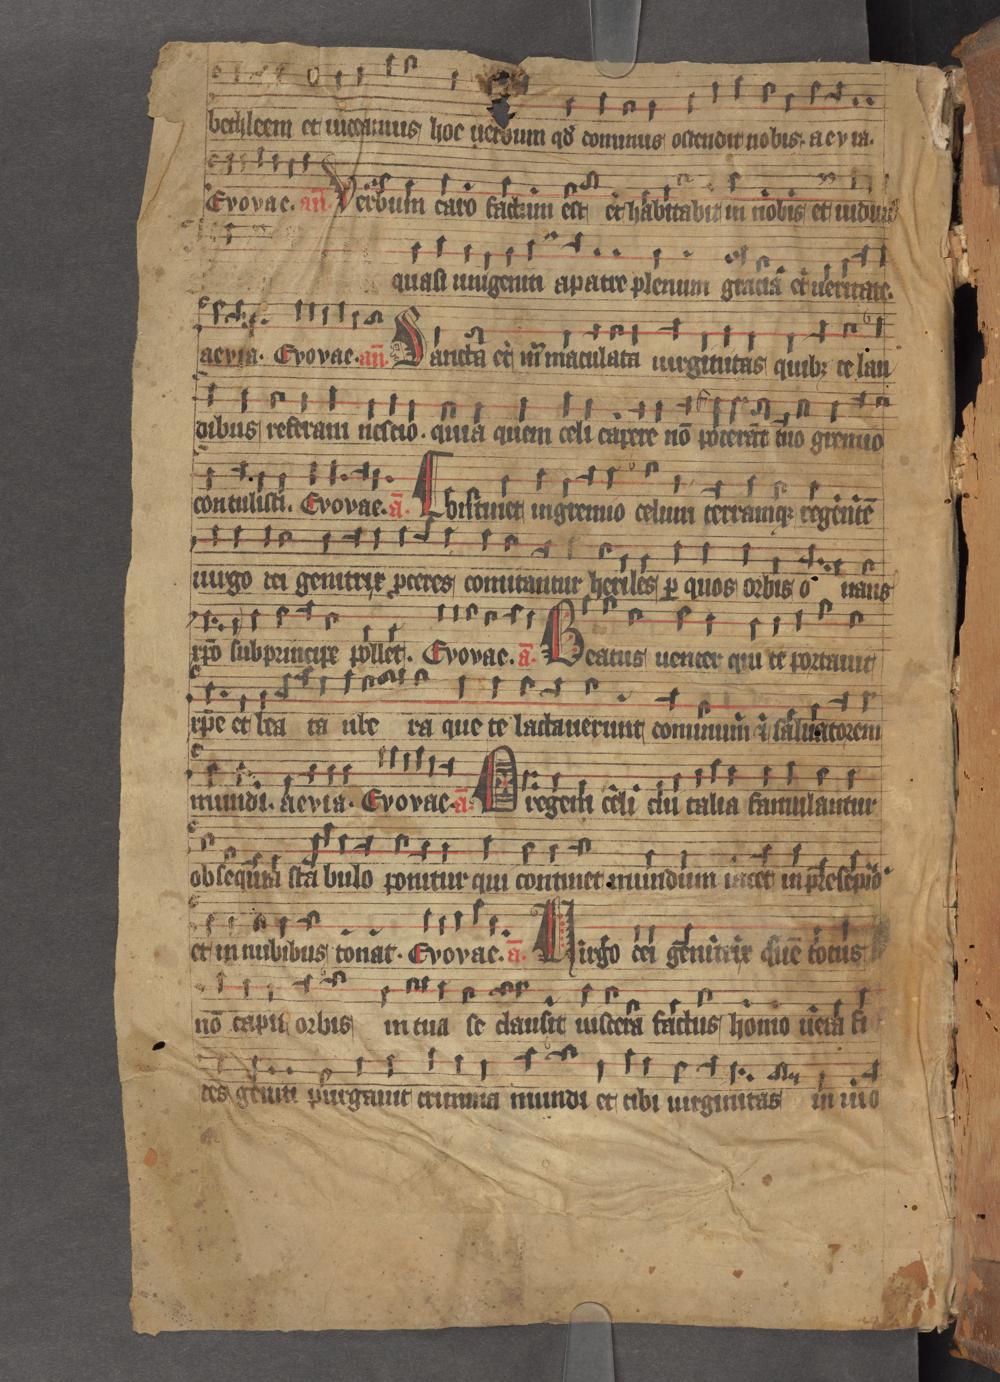 bethleem et uideamus hoc uerbum qd̄ dominus ostendit nobis. aevia.
Evovae. an̄. Verbum caro factum est et habitabit in nobis et uidimꝰ
quasi unigeniti a patre plenum graciā et ueritate.
aevia. Evovae. an̄. Sancta et īmaculata uirginitas quibꝫ te lau
dibus referam nescio. quia quem celi capere nō poterāt tuo gremio
contulisti. Evovae. ā. Obstinet in gremio celum terramqꝫ regentē
uirgo dei genitrix pceres comitantur heriles ꝑ quos orbis o uans
xp̄o sub principe pollet. Evovae. ā. Beatus uenter qui te portauit
xp̄e et bea ta ube ra que te lactauerunt dominum ⁊ saluatorem
mundi. aevia. Evovae. ā. regem celi cui talia famulantur
obsequia sta bulo ponitur qui continet mundum iacet in presepio
et in nubibus tonat. Evovae. ā. Uirgo dei genitrix quē totus
nō capit orbis in tua se clausit uiscera factus homo uera fi
des geniti purgauit crimina mundi et tibi uirginitas in uio